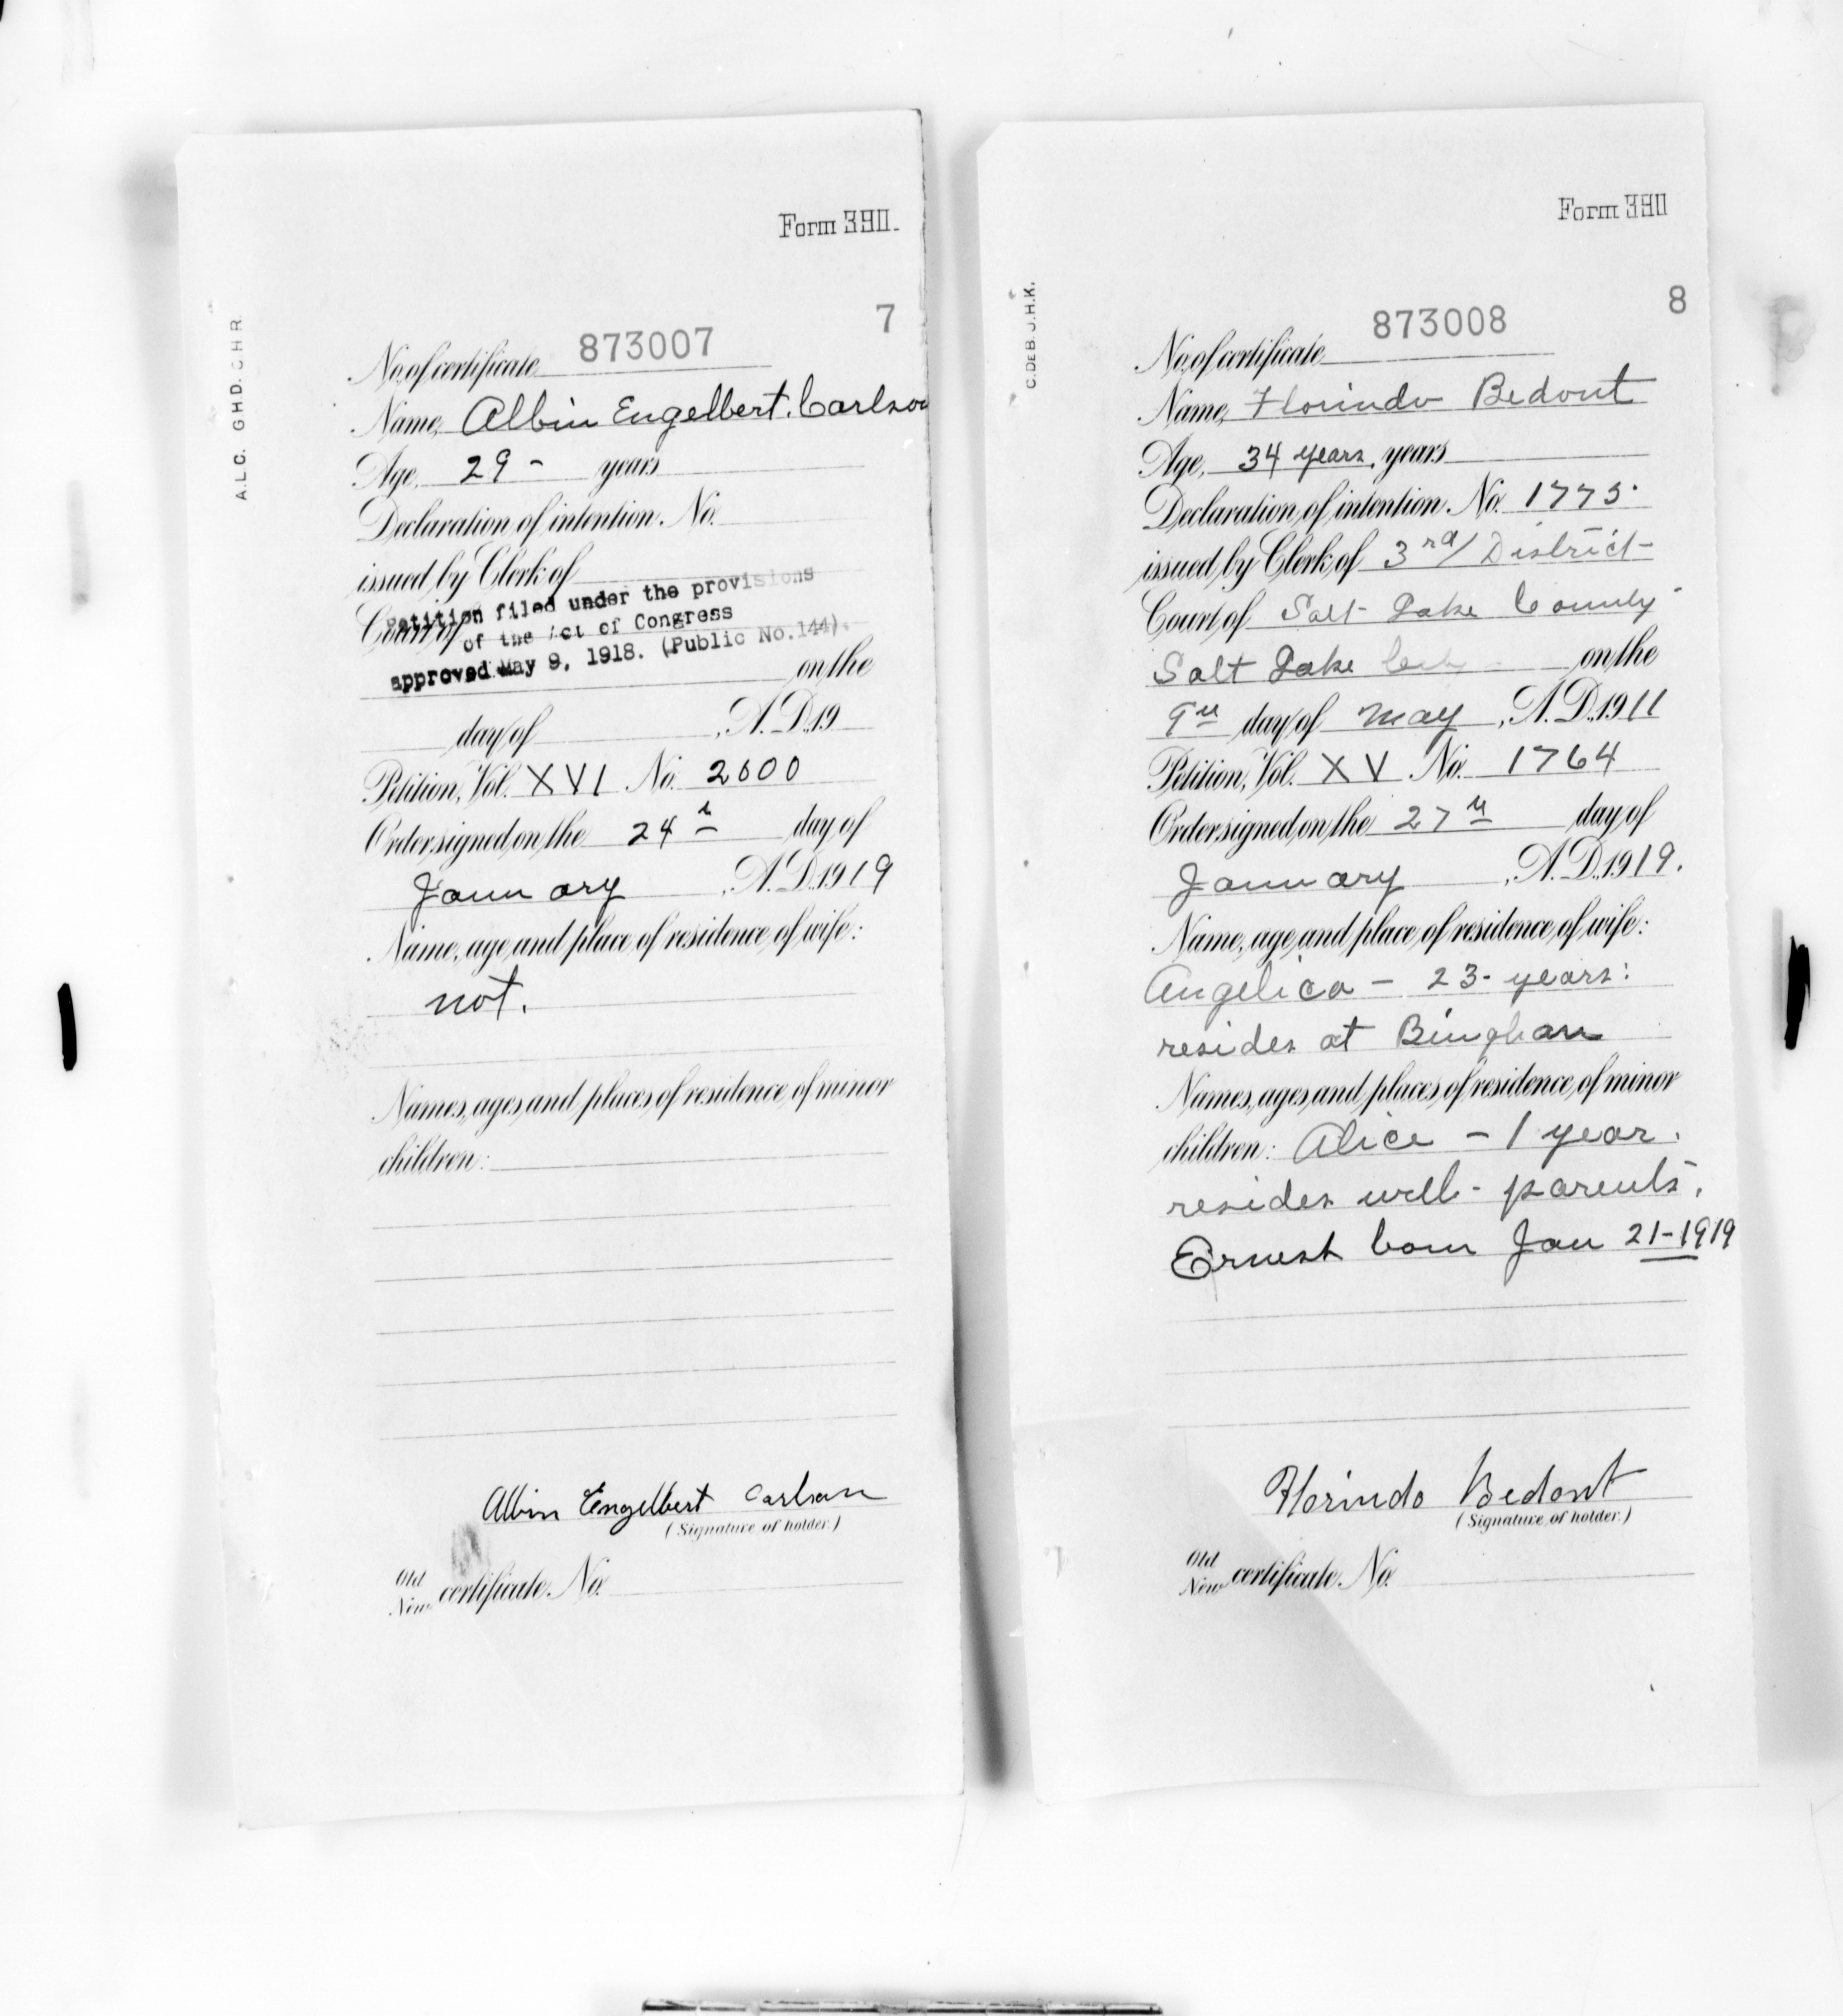 Form 390.
7
A.L.C. G.H.D. C.H.R.
No. of certificate 873007
Name, Albin Engelbert Carlson
Age, 29 - years
Declaration of intention No.
issued by Clerk of
Court of
Petition filed under the provisions
of the Act of Congress
approved May 9, 1918. (Public No.144).
on the
day of , A.D. 19
Petition, Vol. XVI No. 2600
Order signed on the 24th day of
January , A.D. 1919
Name, age and place of residence of wife:
not.
Names, ages and places of residence of minor
children:
Albin Engelbert Carlson
(Signature of holder.)
Old
New certificate No.
Form 390
8
C.DEB. J.H.K.
No. of certificate 873008
Name, Florindo Bedont
Age, 34 years. years
Declaration of intention No. 1775.
issued by Clerk of 3rd/ District
Court of Salt Lake County
Salt Lake on the
9th day of May , A.D. 1911
Petition, Vol. XV No. 1764
Order signed on the 27th day of
January , A.D. 1919.
Name, age and place of residence of wife:
Angelica - 23 - years:
resides at Bingham
Names, ages and places of residence of minor
children: Alice - 1 year.
resides with parents.
Ernest born Jan 21-1919
Florindo Bedont
(Signature of holder.)
Old
New certificate No.